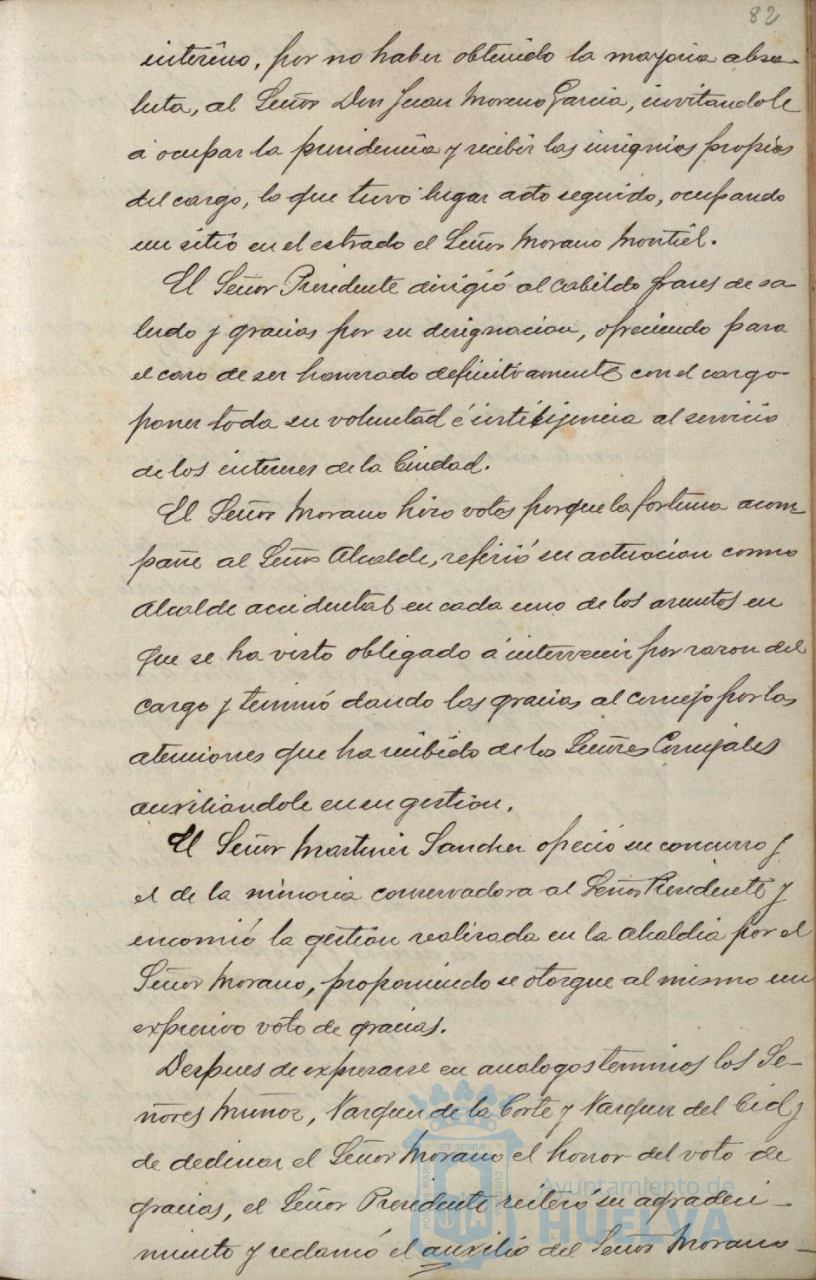 82
interino, por no haber obtenido la mayoria abso-
luta, al Señor Don Juan Moreno Garcia, invitandole
á ocupar la presidencia y recibir las insignias propias
del cargo, lo que tuvo lugar acto seguido, ocupando
un sitio en el estrado el Señor Morano Montiel.
El Señor Presidente dirigió al Cabildo frases de sa-
ludo y gracias por su designacion, ofreciendo para
el caso de ser honrrado definitivamente con el cargo
poner toda su voluntad é inteligencia al servicio
de los intereses de la Ciudad.
El Señor Morano hizo votos porque la fortuna acom-
pañe al Señor Alcalde, refirió su actuacion como
Alcalde accidental en cada uno de los asuntos en
que se ha visto obligado á intervenir por razon del
cargo y terminó dando las gracias al Concejo por las
atenciones que ha recibido de los Señores Concejales
auxiliandole en su gestion.
El Señor Martinez Sanchez ofreció su concurso y
el de la minoria conservadora al Señor Presidente y
encomió la gestion realizada en la Alcaldia por el
Señor Morano, proponiendo se otorgue al mismo un
expresivo voto de gracias.
Despues de expresarse en analogos terminos los Se-
ñores Muñoz, Vazquez de la Corte y Vazquez del Cid y
de declinar el Señor Morano el honor del voto de
gracias, el Señor Presidente reiteró su agradeci-
miento y reclamó el auxilio del Señor Morano
Ayuntamiento de
HUELVA